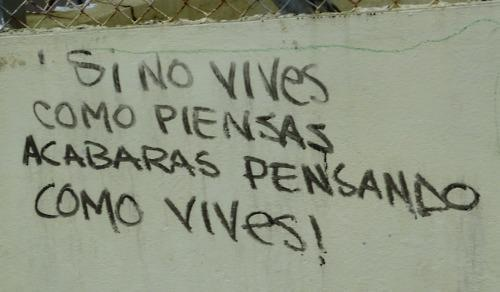 'SI NO VIVES
COMO PIENSAS
ACABARAS PENSANDO
COMO VIVES!